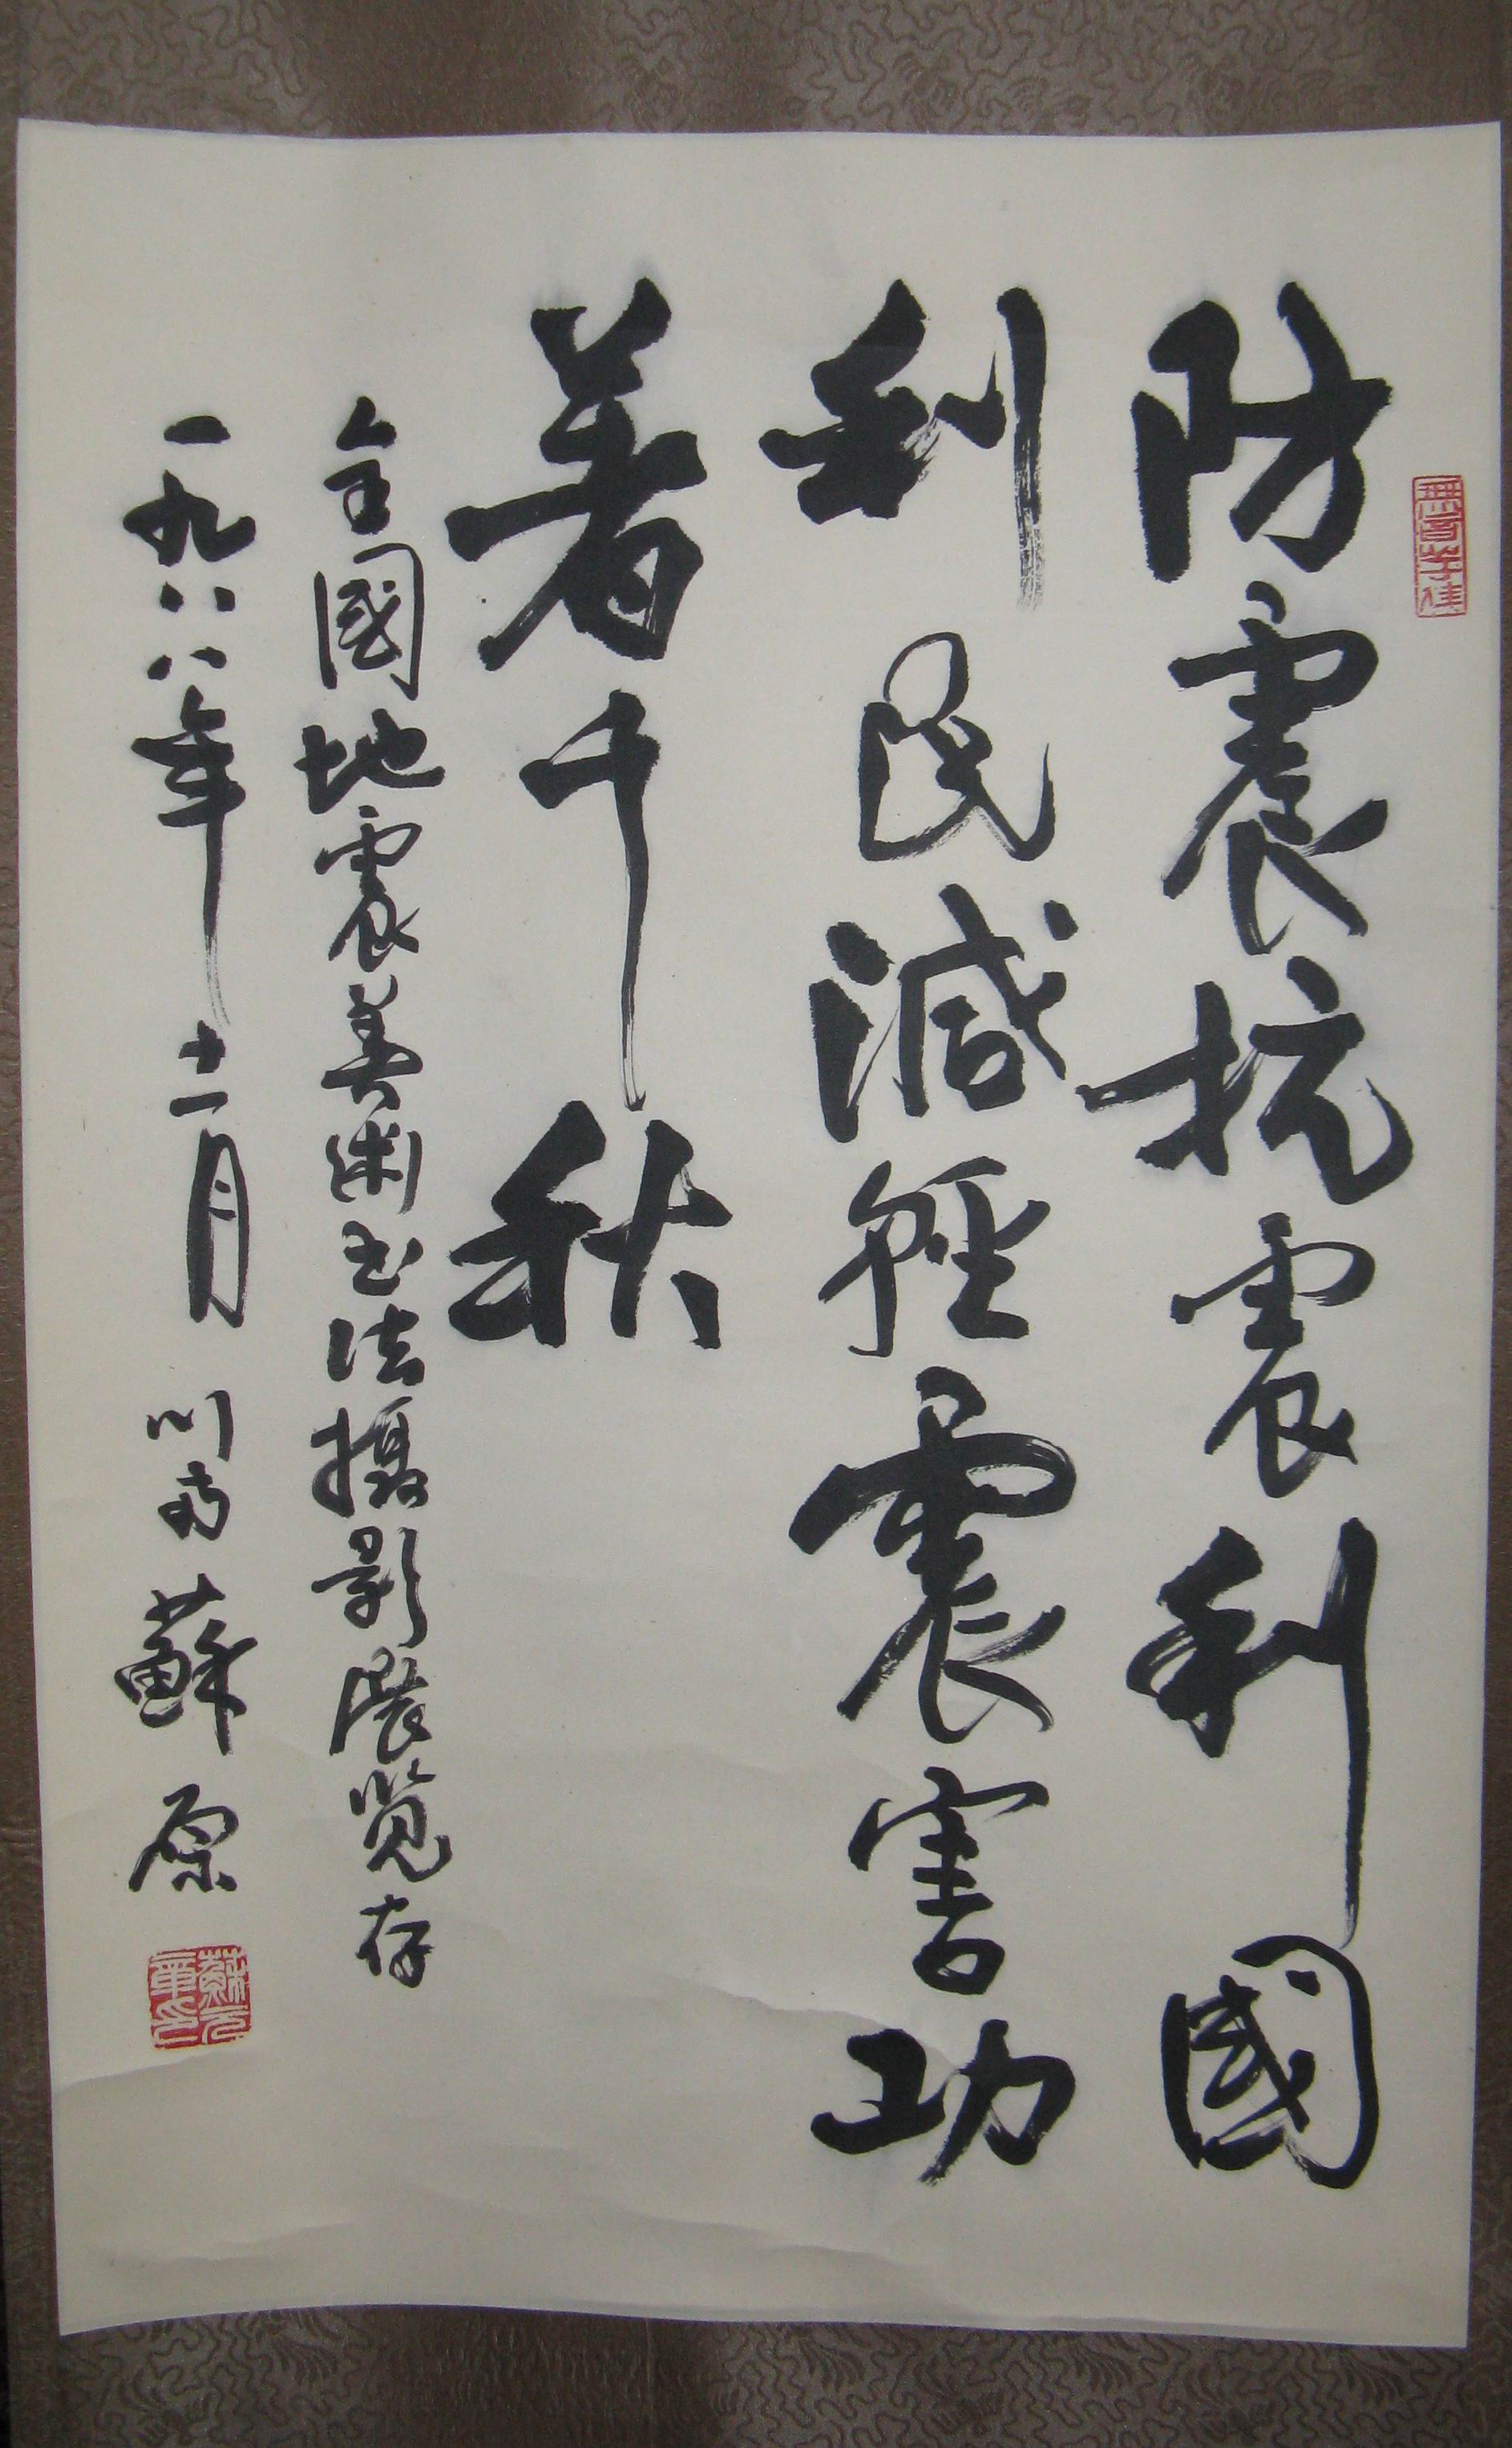 防震抗震利國
利民減輕震害功
著千秋
全國地震美術书法攝影展览存
一九八八年十一月 川南 蘇原